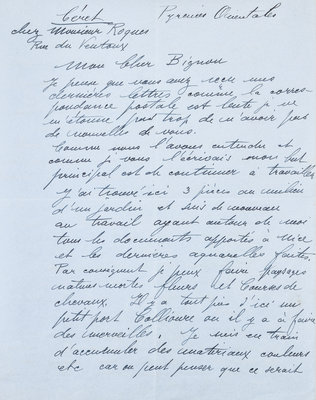 Céret Pyrénées Orientales
chez Monsieur Roques
Rue du Ventous
Mon Cher Bignou
Je pense que vous avez reçu mes
dernières lettres, comme la corres-
pondance postale est lente je ne
m'étonne pas trop de n'avoir pas
de nouvelles de vous.
Comme nous l'avons entendu et
comme je vous l'écrivais mon but
principal est de continuer à travailler
J'ai trouvé ici 3 pièces au milieu
d'un jardin et suis de nouveau
au travail ayant autour de moi
tous les documents apportés à Nice
et les dernières aquarelles faites.
Par conséquent je peux faire paysages
natures mortes fleurs et Courses de
chevaux. Il y a tout près d'ici un
petit port Collioure où il y a à faire
des merveilles. Je suis en train
d'accumuler des matériaux couleurs
etc car on peut penser que ce serait